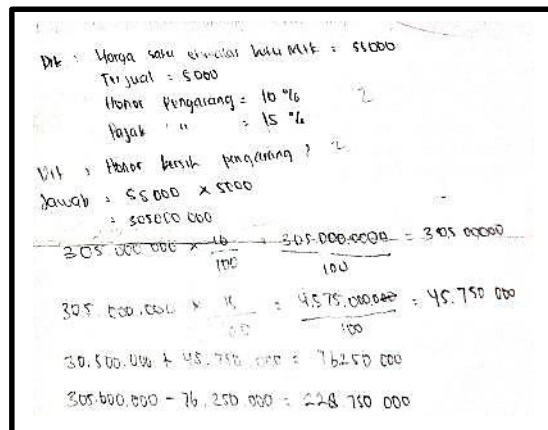 Dik : Harga satu eksemplar buku MTK = 55000
Terjual = 5000
Honor Pengarang = 10 % 2
Pajak " = 15 %
Dit : Honor bersih pengarang ? 2
Jawab : 55 000 × 5000
: 305000 000
305 000 000 × 10/100 = 305.000.0000/100 = 305 00000
305.000.000 × 15/100 = 4.575.000.000/100 = 45.750 000
30.500.000 + 45.750.000 = 76250 000
305.000.000 - 76.250 000 = 228 750 000